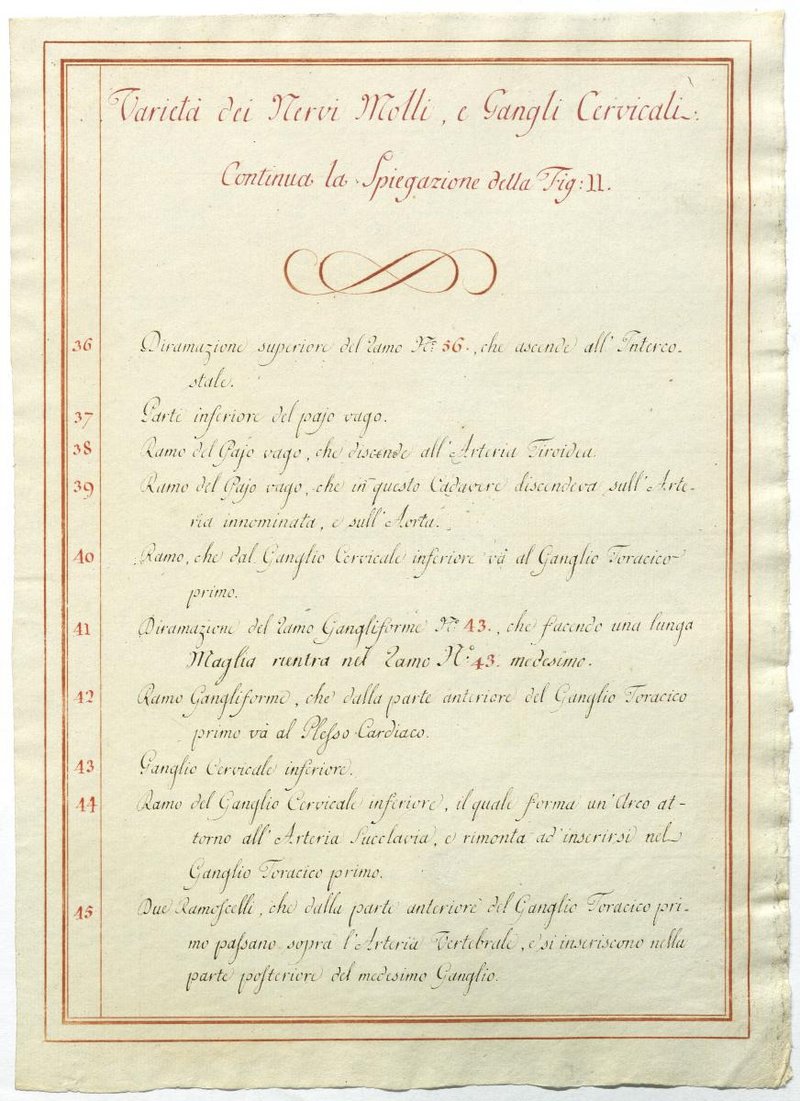 Varietà dei Nervi Molli, e Gangli Cervicali.
Continua la Spiegazione della Fig: II.
36 Diramazione superiore del ramo N.° 36., che ascende all' Interco-
stale.
37 Parte inferiore del pajo vago.
38 Ramo del Pajo vago, che discende all' Arteria Tiroidea.
39 Ramo del Pajo vago, che in questo Cadavere discendeva sull' Arte-
ria innominata, e sull' Aorta.
40 Ramo, che dal Ganglio Cervicale inferiore và al Ganglio Toracico
primo.
41 Diramazione del ramo Gangliforme N.° 43., che facendo una lunga
Maglia rientra nel ramo N.° 43. medesimo.
42 Ramo Gangliforme, che dalla parte anteriore del Ganglio Toracico
primo và al Plesso Cardiaco.
43 Ganglio Cervicale inferiore.
44 Ramo del Ganglio Cervicale inferiore, il quale forma un' Arco at-
torno all' Arteria Succlavia, e rimonta ad inserirsi nel
Ganglio Toracico primo.
45 Due Ramoscelli, che dalla parte anteriore del Ganglio Toracico pri-
mo passano sopra l' Arteria Vertebrale, e si inseriscono nella
parte posteriore del medesimo Ganglio.